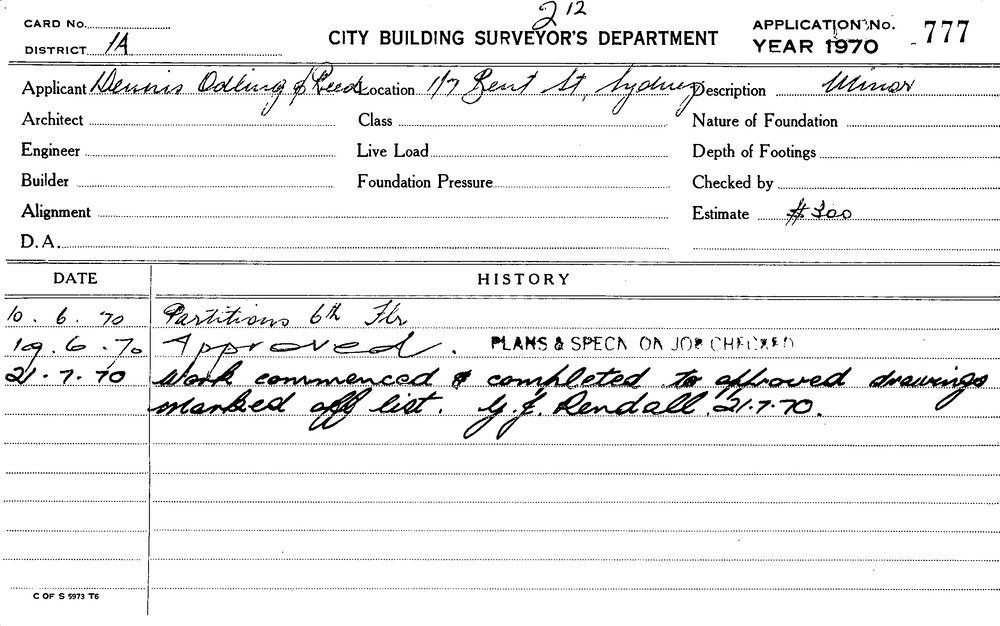 212
CARD No.
DISTRICT 1A
CITY BUILDING SURVEYOR'S DEPARTMENT
APPLICATION No. 777
YEAR 1970
Applicant Dennis Odling & Reeds Location 1/7 Bent St, Sydney Description Minor
Architect Class Nature of Foundation
Engineer Live Load Depth of Footings
Builder Foundation Pressure Checked by
Alignment Estimate $300
D.A.
DATE HISTORY
10.6.70 Partitions 6th Flr
19.6.70 Approved. PLANS & SPECN ON JOB CHECKED
21.7.70 Work commenced & completed to approved drawings
marked off list. G.J. Rendall 21.7.70.
C OF S 5973 T6